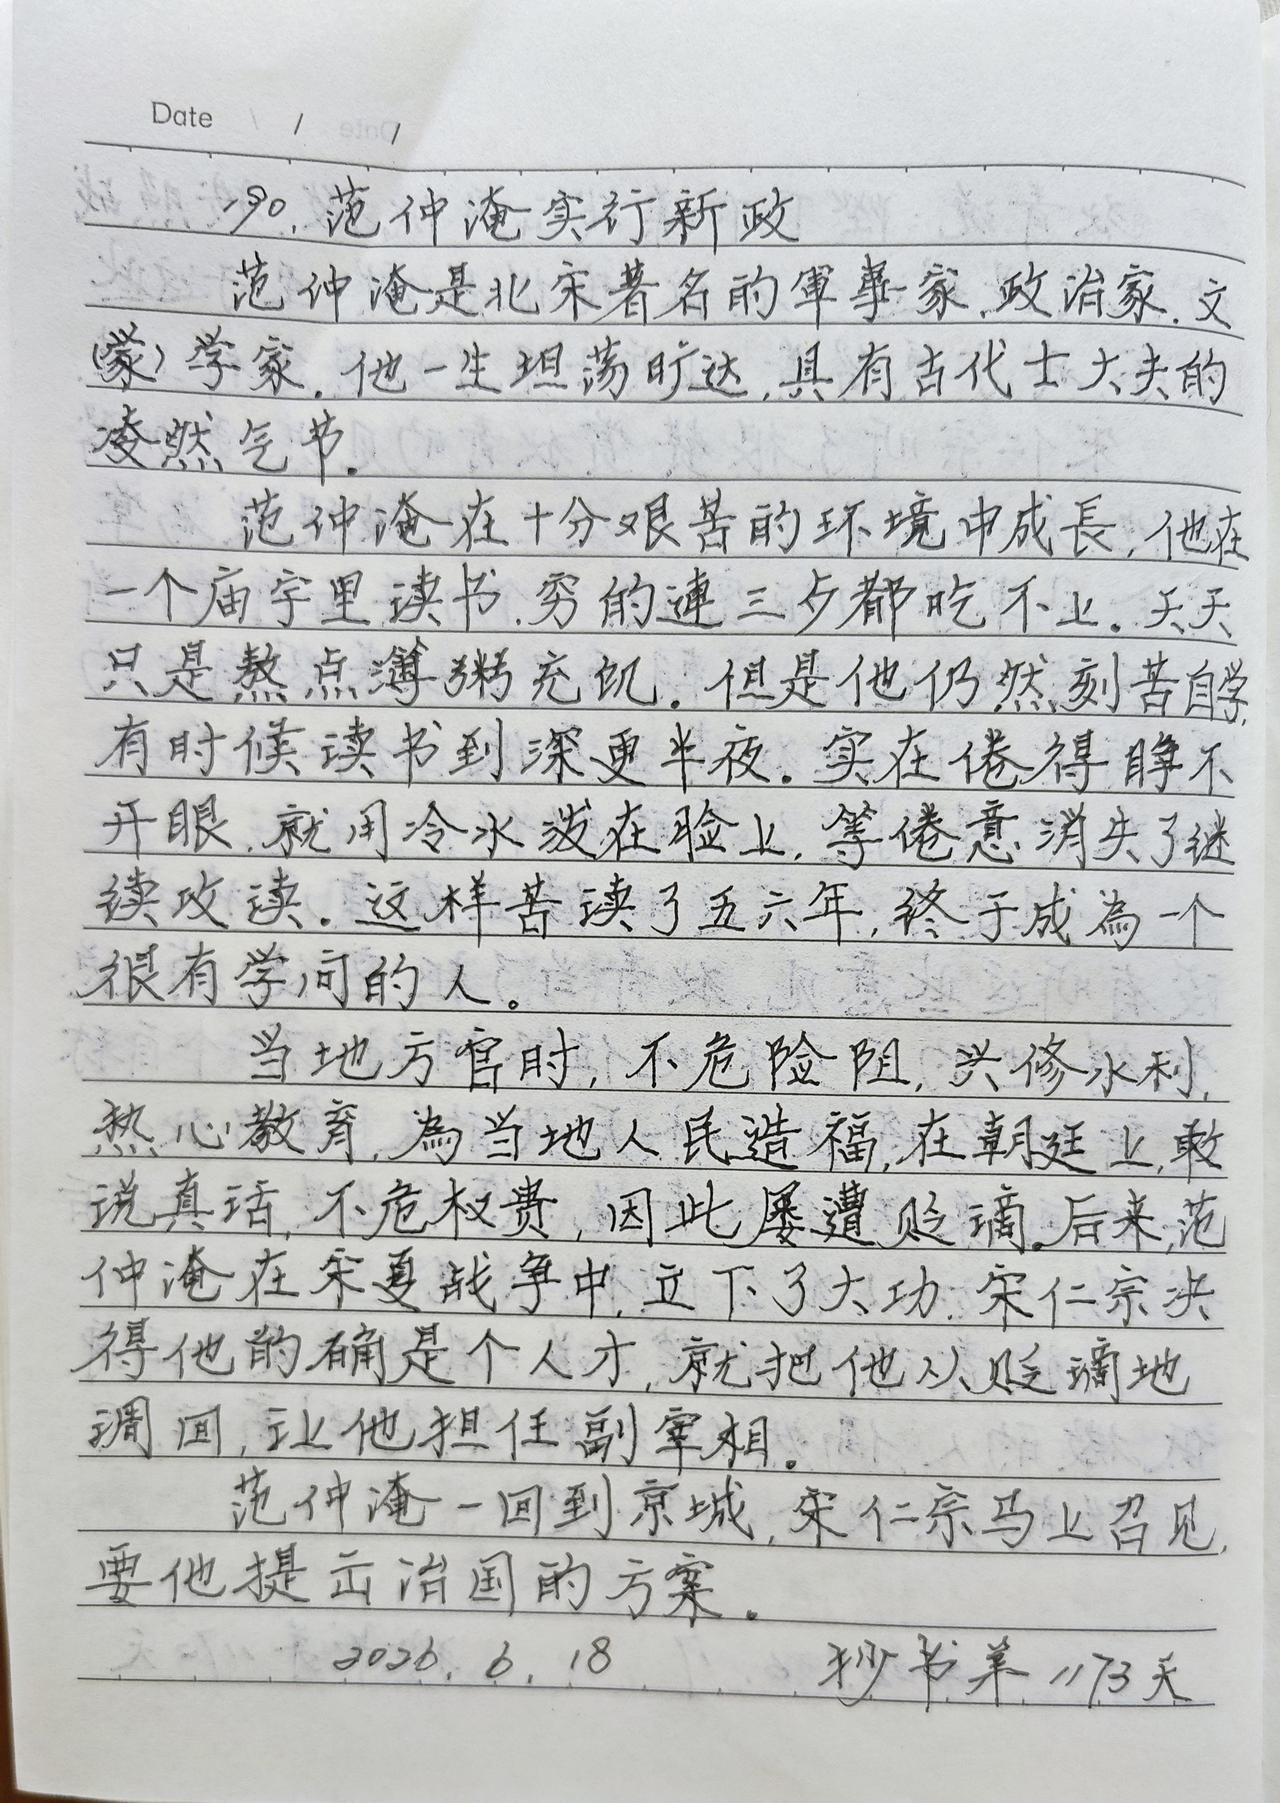 Date / /
190.范仲淹实行新政
范仲淹是北宋著名的軍事家.政治家.文
(家)学家.他一生坦荡旷达,具有古代士大夫的
凌然气节.
范仲淹在十分艰苦的环境中成長,他在
一个庙宇里读书.穷的連三歺都吃不上.天天
只是熬点薄粥充饥.但是他仍然刻苦自学,
有时候读书到深更半夜.实在倦得睁不
开眼.就用冷水泼在脸上,等倦意消失了继
续攻读.这样苦读了五六年,终于成為一个
很有学问的人。
当地方官时,不危险阻,兴修水利,
热心教育,為当地人民造福,在朝廷上,敢
说真话,不危权贵,因此屡遭贬谪.后来,范
仲淹在宋夏战争中,立下了大功.宋仁宗决
得他的确是个人才,就把他从贬谪地
调回,让他担任副宰相.
范仲淹一回到京城,宋仁宗马上召见,
要他提出治国的方案.
2026.6.18 抄书苐1173天